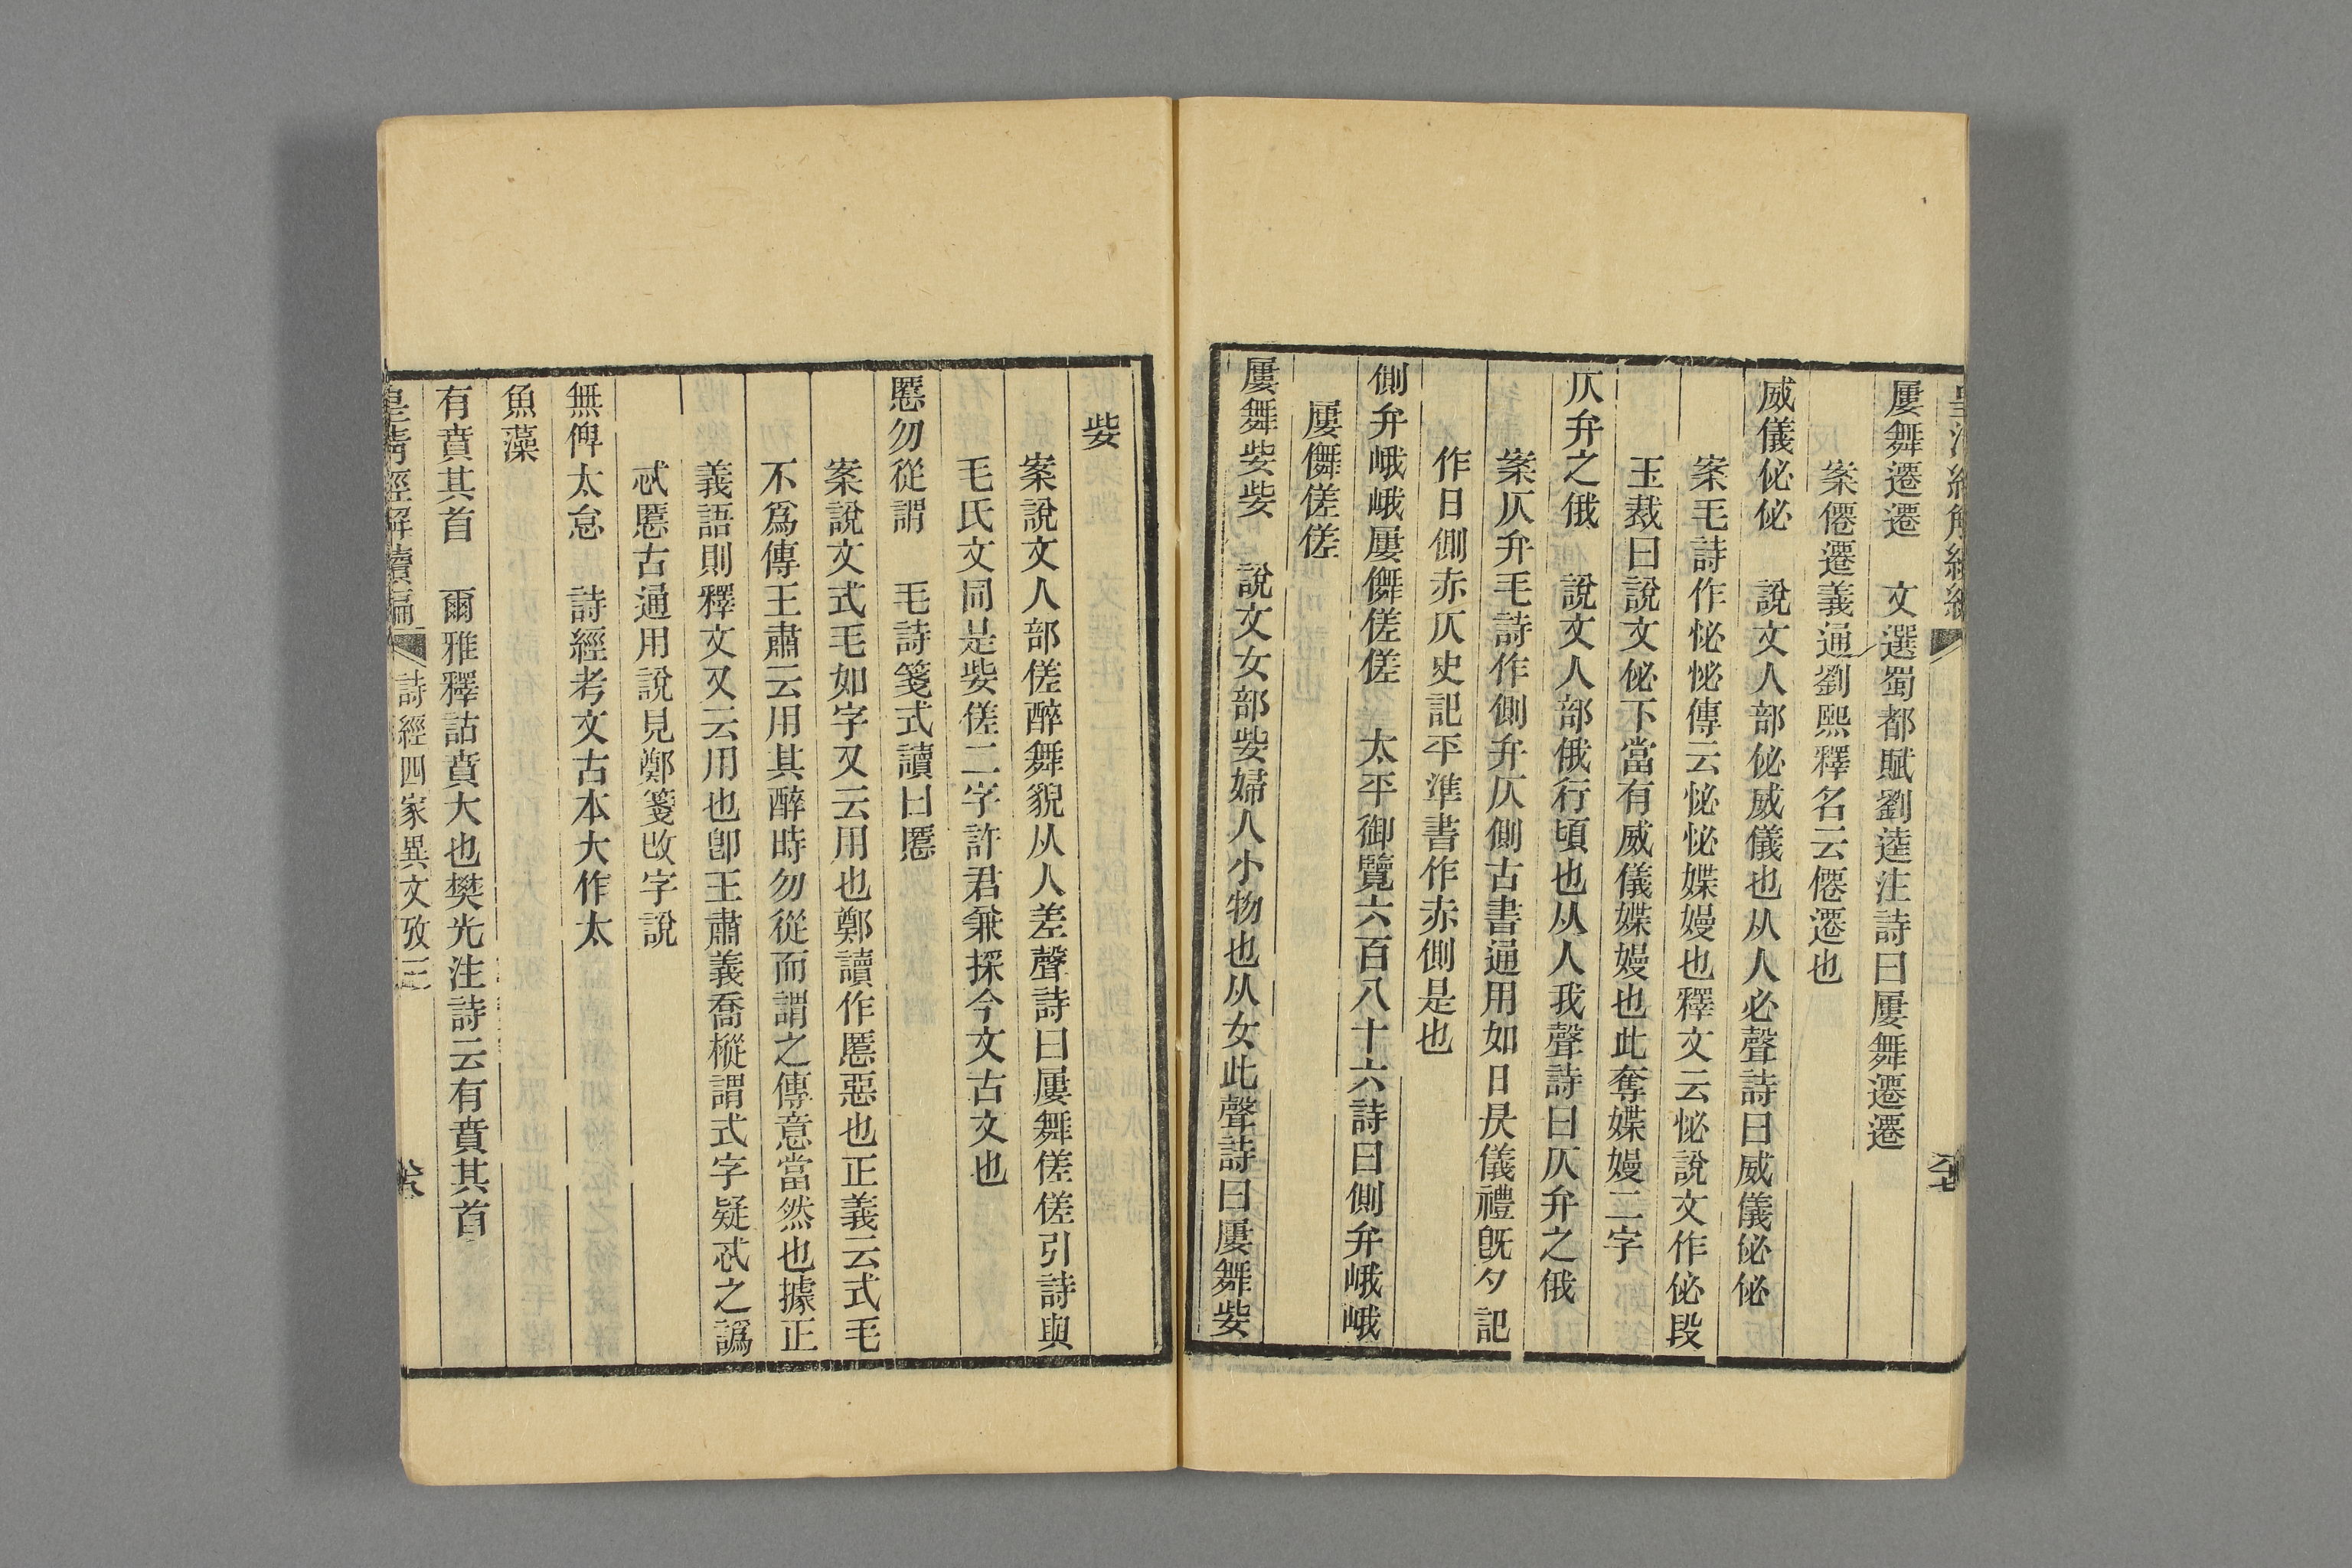 屢舞遷遷　文選蜀都賦劉逵注詩曰屢舞遷遷
案僊遷義通劉熙釋名云僊遷也
威儀佖佖　說文人部佖威儀也从人必聲詩曰威儀佖佖
案毛詩作怭怭傳云怭怭媟嫚也釋文云怭說文作佖段
玉裁曰說文佖下當有威儀媟嫚也此奪媟嫚二字
仄弁之俄　說文人部俄行頃也从人我聲詩曰仄弁之俄
案仄弁毛詩作側弁仄側古書通用如日昃儀禮旣夕記
作日側赤仄史記平準書作赤側是也
側弁峨峨屢儛傞傞　太平御覽六百八十六詩曰側弁峨峨
屢儛傞傞
屢舞姕姕　說文女部姕婦人小物也从女此聲詩曰屢舞姕
姕
案說文人部傞醉舞貌从人差聲詩曰屢舞傞傞引詩與
毛氏文同是姕傞二字許君兼採今文古文也
慝勿從謂　毛詩箋式讀曰慝
案說文式毛如字又云用也鄭讀作慝惡也正義云式毛
不爲傳王肅云用其醉時勿從而謂之傳意當然也據正
義語則釋文又云用也卽王肅義喬樅謂式字疑忒之譌
忒慝古通用說見鄭箋改字說
無俾太怠　詩經考文古本大作太
魚藻
有賁其首　爾雅釋詁賁大也樊光注詩云有賁其首
皇清經解續編　詩經四家異文攷三